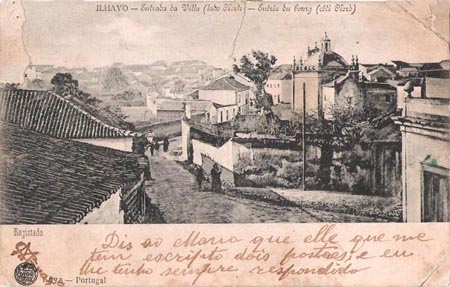 ILHAVO — Entrada da Villa (lado Norte) — Entrée du bourg (côté Nord)
Registado
Diz ao Mario que elle que me
tem escripto dois postães; e eu
lhe tenho sempre respondido
— Portugal